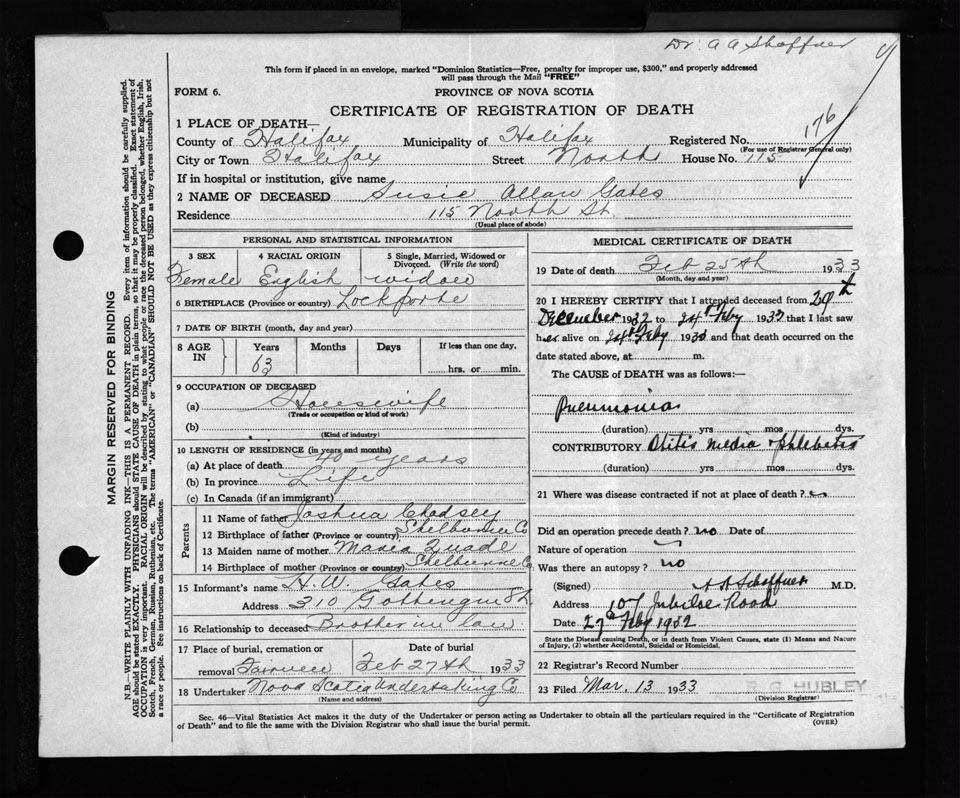 Dr. A A Shaffner
This form if placed in an envelope, marked "Dominion Statistics—Free, penalty for improper use, $300," and properly addressed
will pass through the Mail "FREE"
FORM 6.
PROVINCE OF NOVA SCOTIA
CERTIFICATE OF REGISTRATION OF DEATH
176
1 PLACE OF DEATH—
County of Halifax Municipality of Halifax Registered No.
(For use of Registrar General only)
City or Town Halifax Street North House No. 115
If in hospital or institution, give name
2 NAME OF DECEASED Susie Allan Gates
Residence 115 North St.
(Usual place of abode)
PERSONAL AND STATISTICAL INFORMATION
3 SEX 4 RACIAL ORIGIN 5 Single, Married, Widowed or
Divorced. (Write the word)
Female English widow
6 BIRTHPLACE (Province or country) Lockporte
7 DATE OF BIRTH (month, day and year)
8 AGE IN Years Months Days If less than one day,
63 hrs. or min.
9 OCCUPATION OF DECEASED
(a) Housewife
(Trade or occupation or kind of work)
(b)
(Kind of industry)
10 LENGTH OF RESIDENCE (in years and months)
(a) At place of death 40 years
(b) In province Life
(c) In Canada (if an immigrant)
Parents
11 Name of father Joshua Chadsey
12 Birthplace of father (Province or country) Shelburne Co
13 Maiden name of mother Maria Quade
14 Birthplace of mother (Province or country) Shelburne Co.
15 Informant's name H.W. Gates
Address 310 Gottingen St.
16 Relationship to deceased Brother in law
17 Place of burial, cremation or removal Fairview
Date of burial Feb 27th 1933
18 Undertaker Nova Scotia Undertaking Co
(Name and address)
MEDICAL CERTIFICATE OF DEATH
19 Date of death Feb 25th 1933
(Month, day and year)
20 I HEREBY CERTIFY that I attended deceased from 20th
December 1932 to 24th Feby 1933 that I last saw
her alive on 24th Feby 1933 and that death occurred on the
date stated above, at m.
The CAUSE of DEATH was as follows:—
Pneumonia
(duration) yrs mos dys.
CONTRIBUTORY Otitis media & phlebitis
(duration) yrs mos dys.
21 Where was disease contracted if not at place of death?
Did an operation precede death? no Date of
Nature of operation
Was there an autopsy? no
(Signed) A A Schaffner M.D.
Address 107 Jubilee Road
Date 27th Feby 1932
State the Disease causing Death, or in death from Violent Causes, state (1) Means and Nature
of Injury, (2) whether Accidental, Suicidal or Homicidal.
22 Registrar's Record Number
23 Filed Mar. 13 1933 B. G. HUBLEY
(Division Registrar)
Sec. 46—Vital Statistics Act makes it the duty of the Undertaker or person acting as Undertaker to obtain all the particulars required in the "Certificate of Registration
of Death" and to file the same with the Division Registrar who shall issue the burial permit.
(OVER)
MARGIN RESERVED FOR BINDING
N.B.—WRITE PLAINLY WITH UNFADING INK—THIS IS A PERMANENT RECORD. Every item of information should be carefully supplied.
AGE should be stated EXACTLY. PHYSICIANS should STATE CAUSE OF DEATH in plain terms, so that it may be properly classified. Exact statement of
OCCUPATION is very important. RACIAL ORIGIN will be described by stating to what people or race the deceased person belonged, whether English, Irish,
Scotch, French, German, Russian, Ruthenian, etc. The terms "AMERICAN" or "CANADIAN" SHOULD NOT BE USED as they express citizenship but not
a race or people. See instructions on back of Certificate.